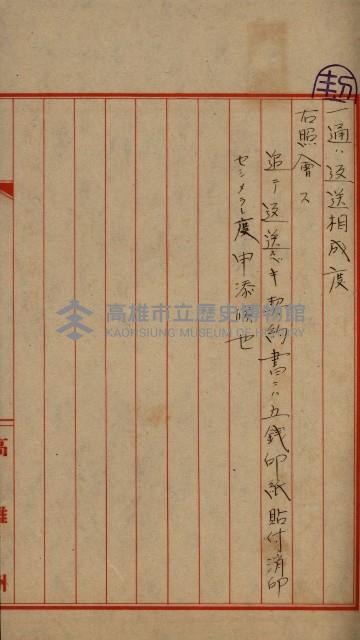 一通ハ返送相成度
右照會ス
追テ返送スベキ契約書ニハ五錢印紙貼付消印
セシメラレ度申添候也
高雄州
高雄市立歷史博物館
KAOHSIUNG MUSEUM OF HISTORY